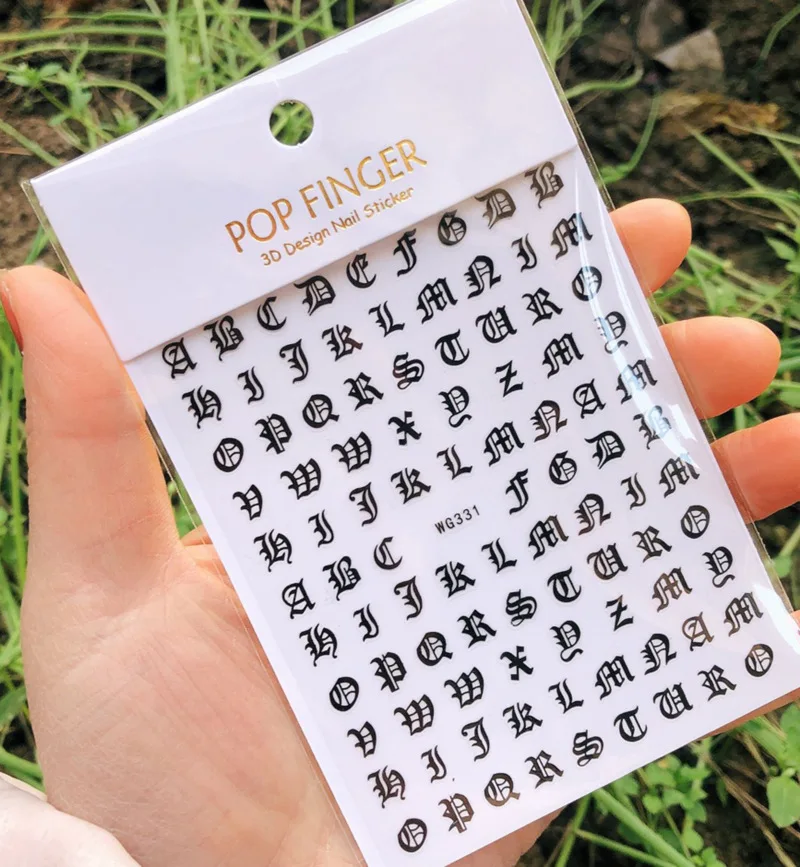 POP FINGER
3D Design Nail Sticker
A B C D E F G D B
H I J K L M N I M
O P Q R S T U R O
V W W X Y Z M Y
H I J K L M N A M
A B C WG331 F G D B
H I J K L M N I M
O P Q R S T U R O
V W W X Y Z M Y
H I J K L M N A M
O P Q R S T U R O